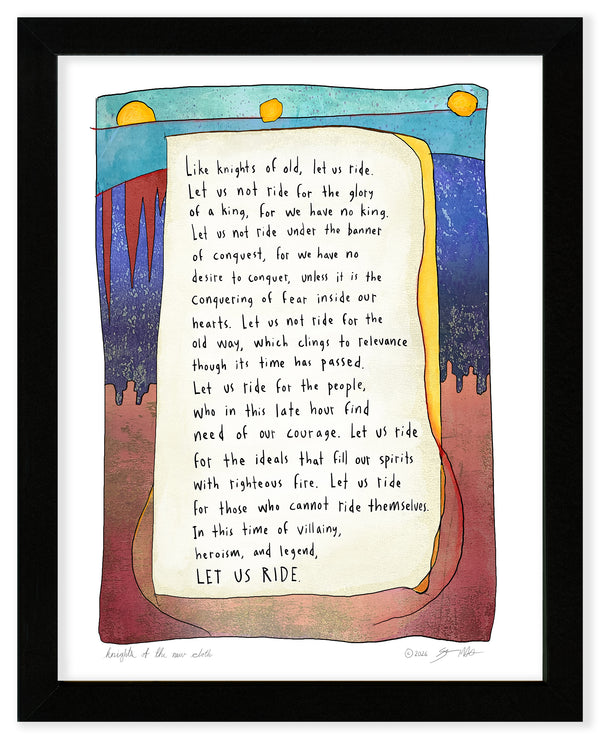 Like knights of old, let us ride.
Let us not ride for the glory
of a king, for we have no king.
Let us not ride under the banner
of conquest, for we have no
desire to conquer, unless it is the
conquering of fear inside our
hearts. Let us not ride for the
old way, which clings to relevance
though its time has passed.
Let us ride for the people,
who in this late hour find
need of our courage. Let us ride
for the ideals that fill our spirits
with righteous fire. Let us ride
for those who cannot ride themselves.
In this time of villainy,
heroism, and legend,
LET US RIDE.
knights of the new cloth
©2026